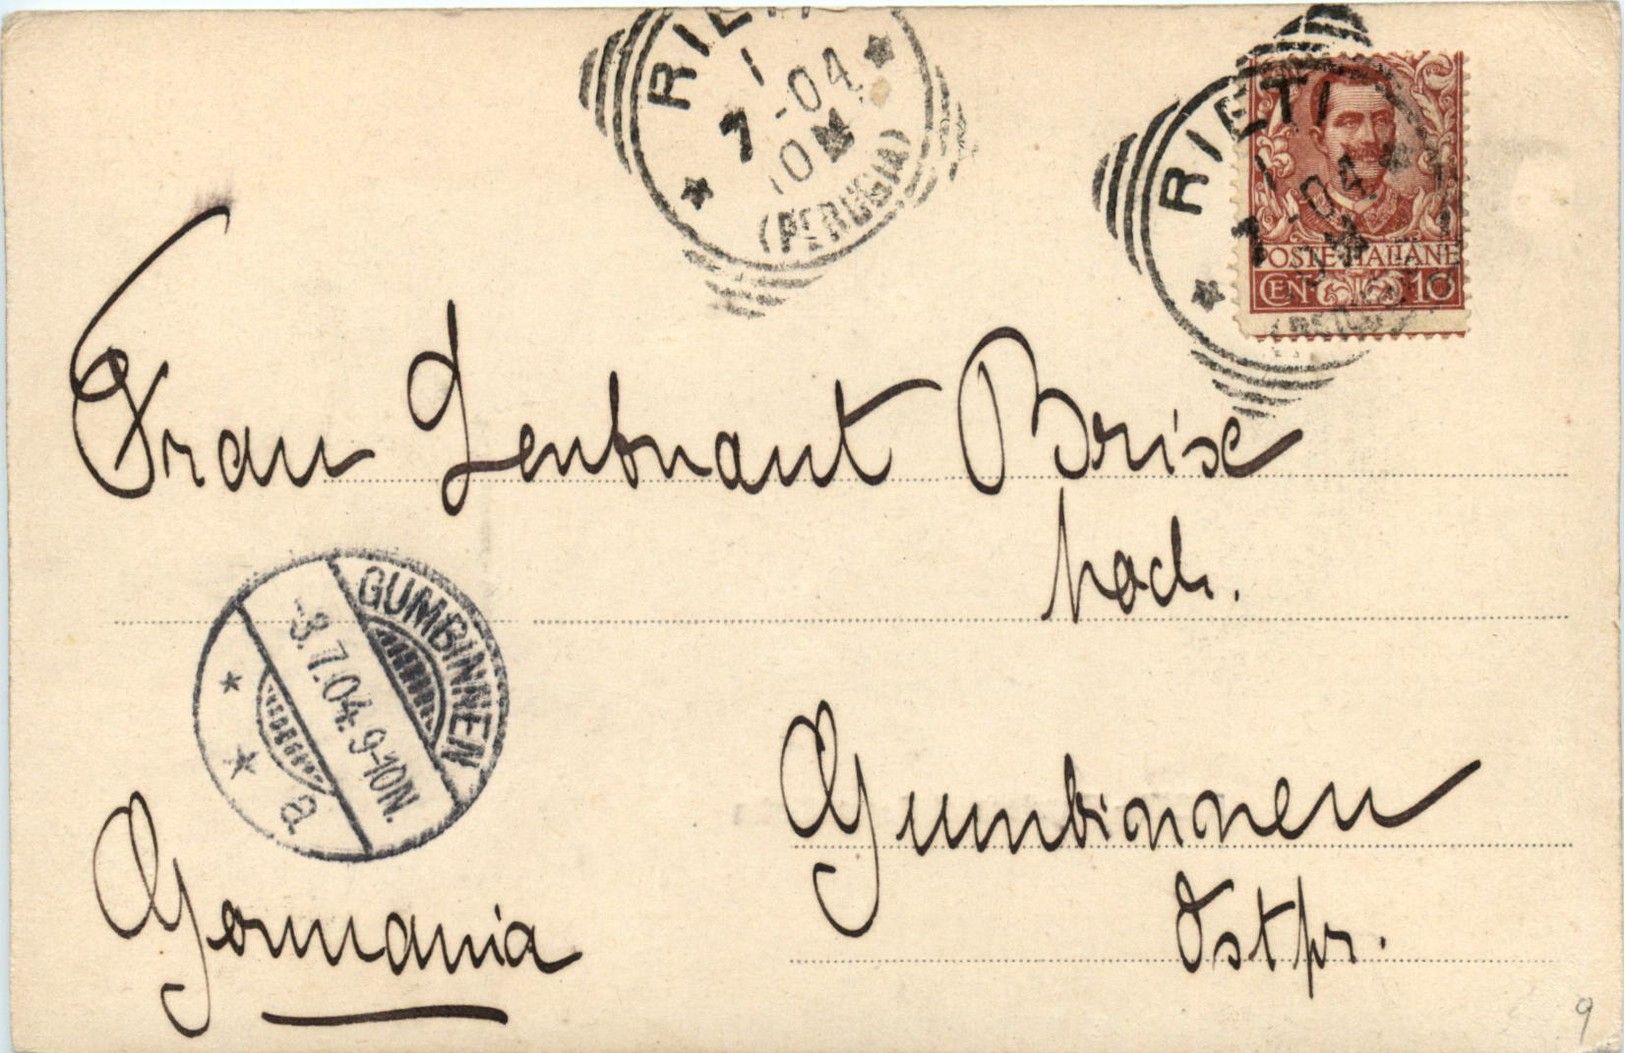 RIETI
1
7-04
10
(PERUGIA)
RIETI
1
7-04
POSTE ITALIANE
CEN. 10
Frau Leutnant Brix
hoch.
GUMBINNEN
-8.7.04. 9-10N.
a
Gumbinnen
Ostpr.
Germania
9